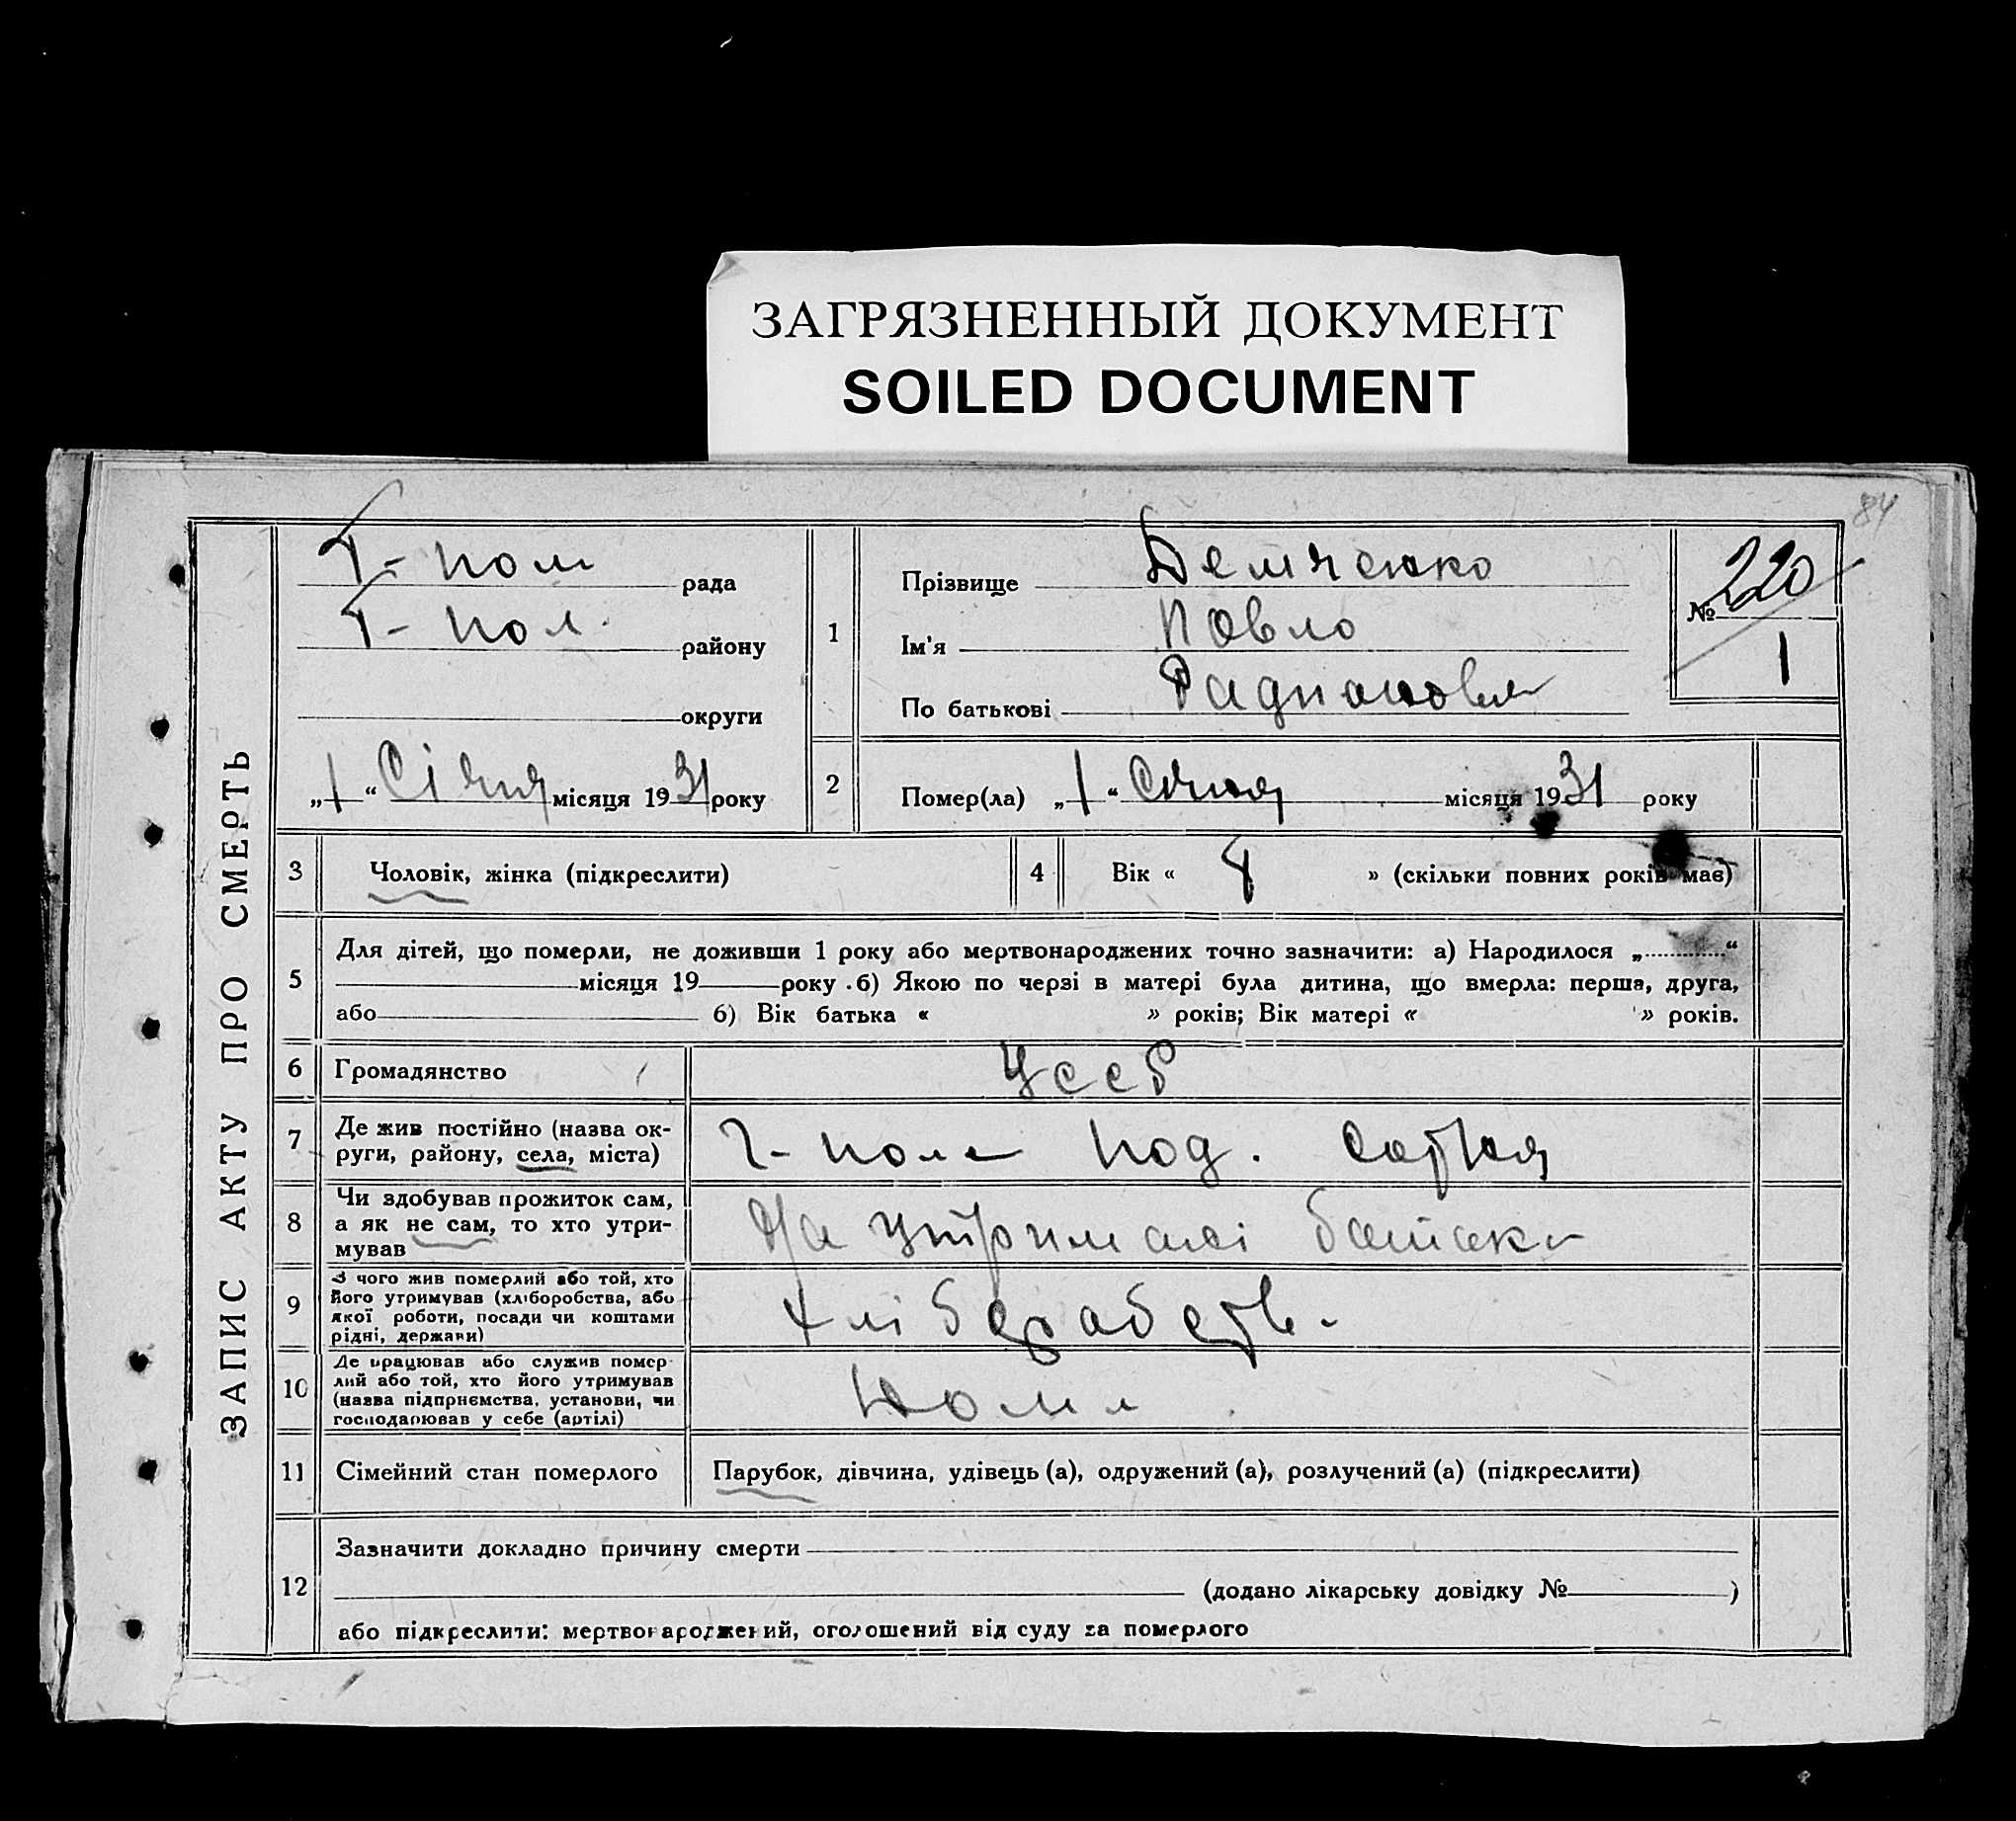 ЗАГРЯЗНЕННЫЙ ДОКУМЕНТ
SOILED DOCUMENT
84
ЗАПИС АКТУ ПРО СМЕРТЬ
Г-пол рада
Г-пол. району
округи
„1“ Січня місяця 1931 року
1
Прізвище Демченко
Ім'я Павло
По батькові
№ 220
1
2
Помер(ла) „1“ Січня місяця 1931 року
3
Чоловік, жінка (підкреслити)
4
Вік « 4 » (скільки повних років має)
5
Для дітей, що померли, не доживши 1 року або мертвонароджених точно зазначити: а) Народилося „ “
місяця 19 року . б) Якою по черзі в матері була дитина, що вмерла: перша, друга,
або б) Вік батька « » років; Вік матері « » років.
6
Громадянство
УССР
7
Де жив постійно (назва ок-
руги, району, села, міста)
Г-поле
8
Чи здобував прожиток сам,
а як не сам, то хто утри-
мував
На утримані батька
9
З чого жив померлий або той, хто
його утримував (хліборобства, або
якої роботи, посади чи коштами
рідні, держави)
10
Де працював або служив помер-
лий або той, хто його утримував
(назва підприємства, установи, чи
господарював у себе (артілі)
11
Сімейний стан померлого
Парубок, дівчина, удівець (а), одружений (а), розлучений (а) (підкреслити)
12
Зазначити докладно причину смерти
(додано лікарську довідку № )
або підкреслити: мертвонароджений, оголошений від суду за померлого